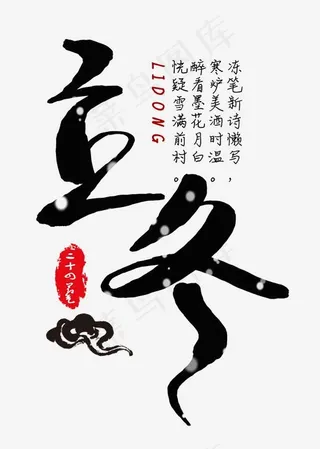 立冬
冻笔新诗懒写，
寒炉美酒时温。
醉看墨花月白
恍疑雪满前村。
LIDONG
二十四节气